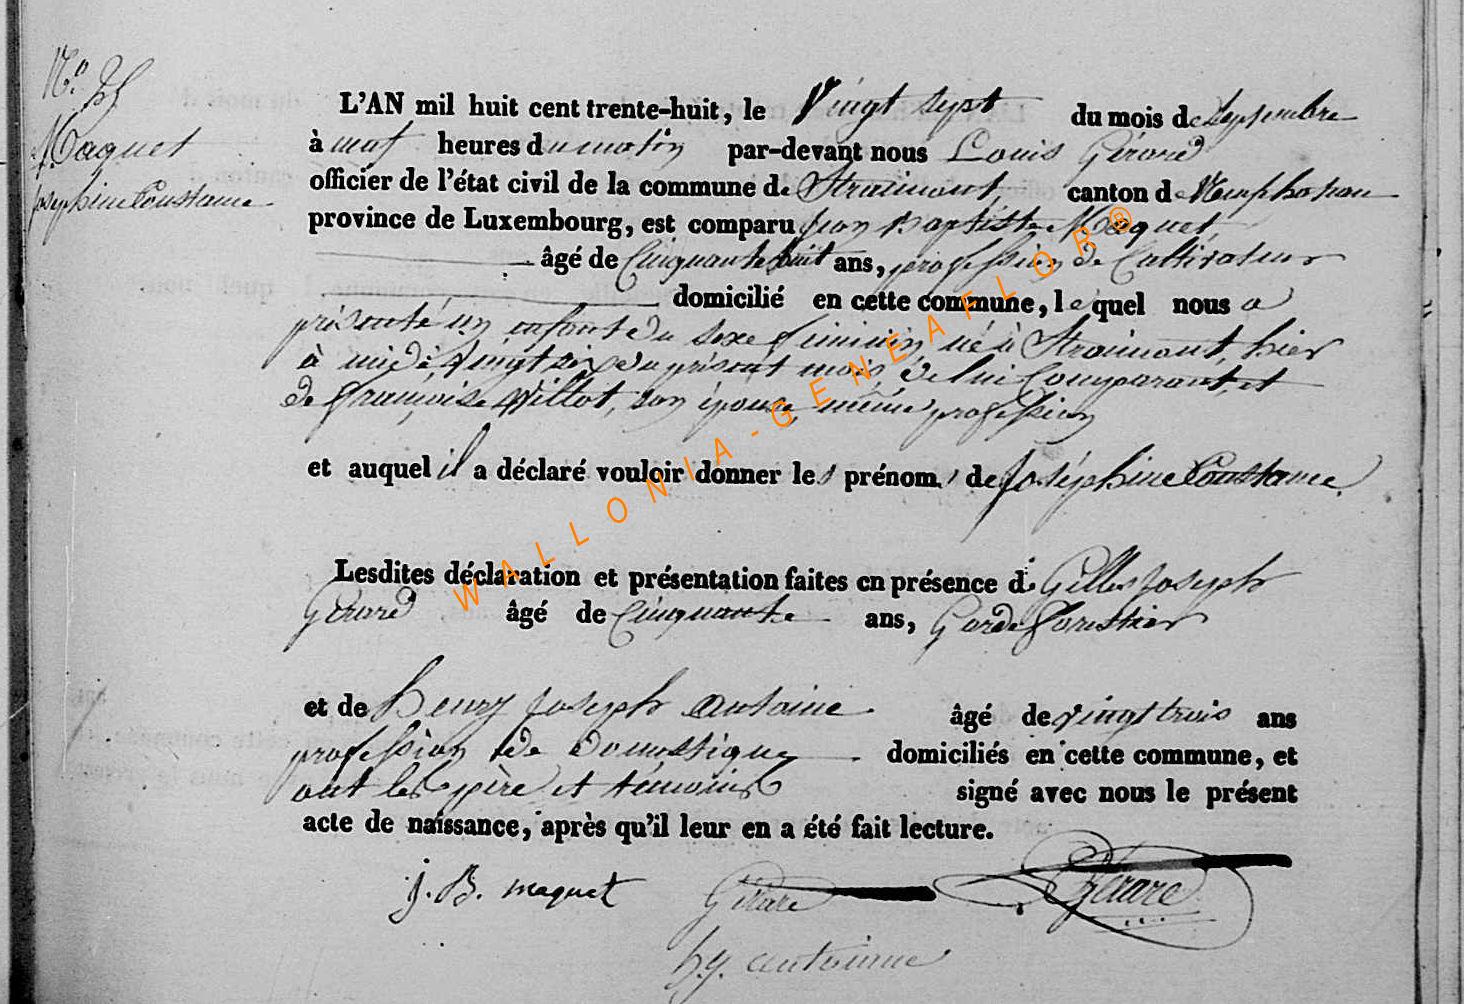 N.o
Maquet
Josephine Constance
L'AN mil huit cent trente-huit, le Vingt sept du mois de Septembre
à neuf heures du matin par-devant nous Louis Gérard
officier de l'état civil de la commune de Straimont, canton de Neufchateau
province de Luxembourg, est comparu Jean Baptiste Maquet
âgé de Cinquante huit ans, profession de Cultivateur
domicilié en cette commune, lequel nous a
présenté un enfant du sexe feminin né à Straimont, hier
à midi vingt six du présent mois, de lui Comparant, et
de Françoise Willot, son épouse, même profession
et auquel il a déclaré vouloir donner les prénoms de Joséphine Constance.
Lesdites déclaration et présentation faites en présence de Gilles Joseph
Gérard âgé de Cinquante ans, Garde forestier
et de Henry Joseph Antoine âgé de vingt trois ans
profession de domestique domiciliés en cette commune, et
ont les père et témoins signé avec nous le présent
acte de naissance, après qu'il leur en a été fait lecture.
J. B. maquet Gérard Gérard
hy. antoinne
WALLONIA-GENEAFLOR®